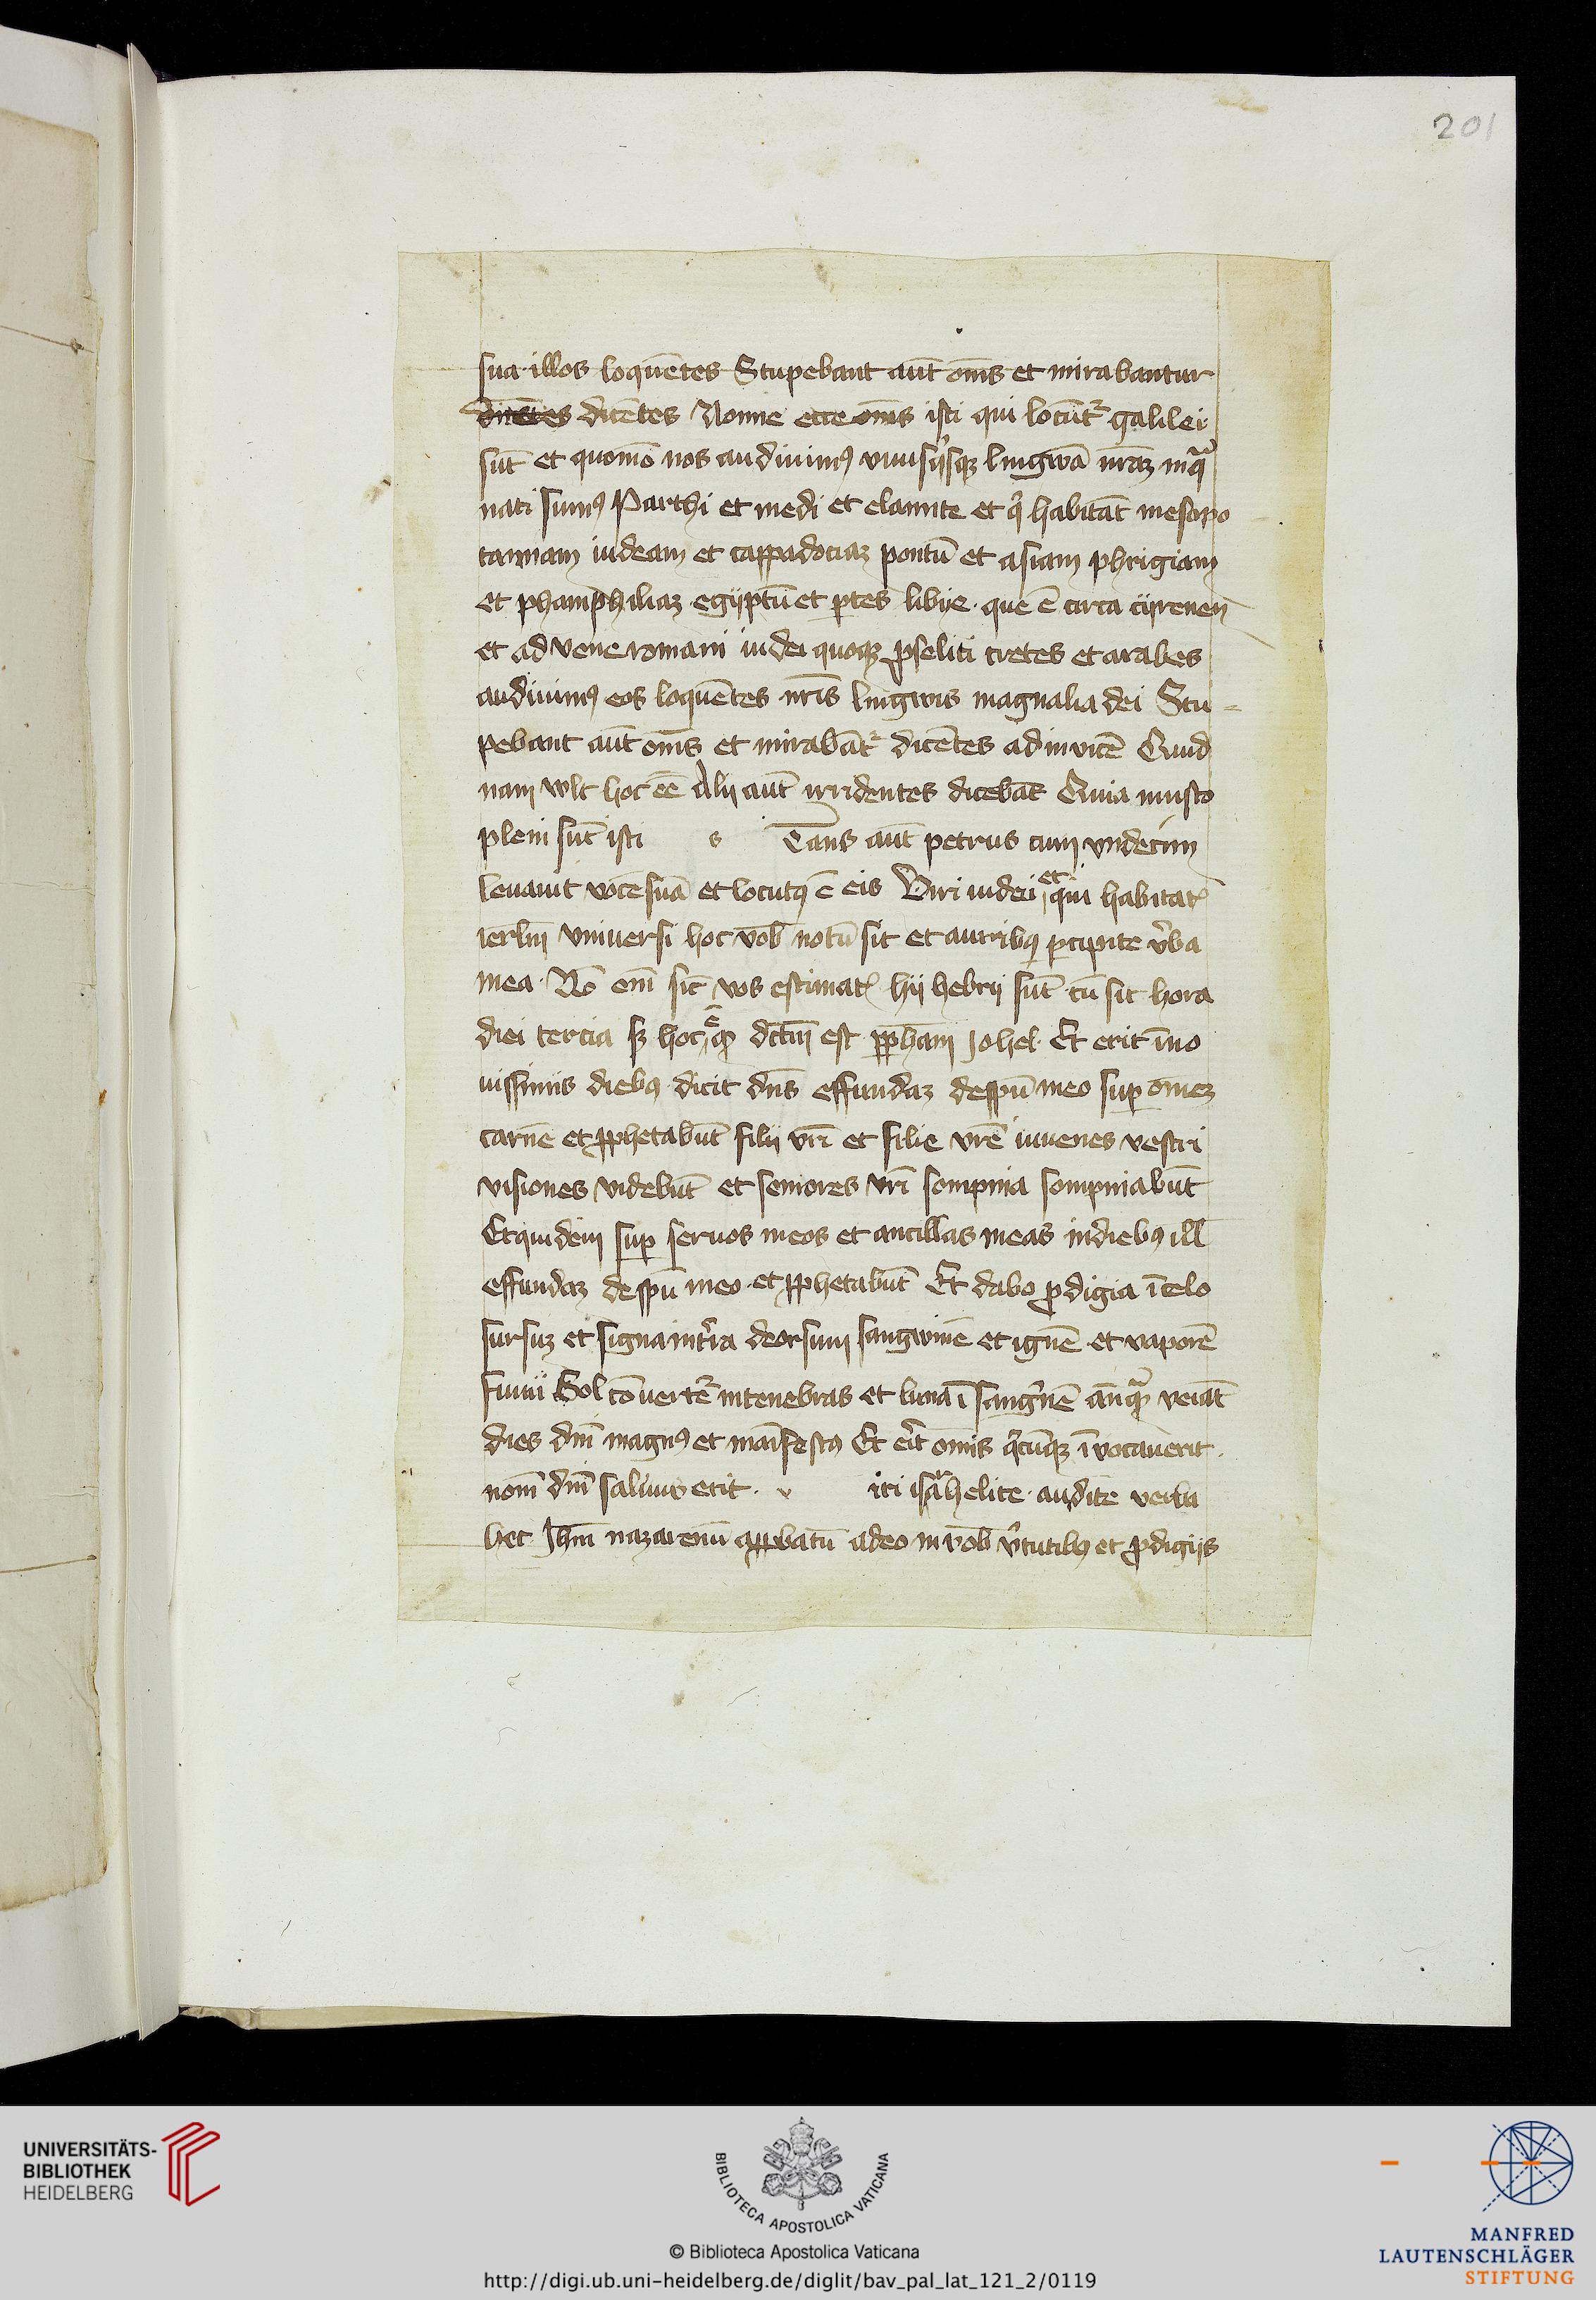 201
sua illos loquētes Stupebant aūt om̄s et mirabantur
dicētes dicētes Nonne ecce om̄s isti qui locūt᷑ galilei
sūt et quomō nos audiuimꝰ vnusqͥsqꝫ lingwā nr̄aꝫ inqᷓ
nati sumꝰ Parthi et medi et elamite et qͥ habitāt mesopo
tamiam iudeam et cappadociaꝫ pontū et asiam phrigiam
et phamphiliaꝫ egijptū et ꝑtes libije · que ē circa cijrenen
et advene romani iudei quoqꝫ ꝓseliti cretes et arabes
audiuimꝰ eos loquētes nr̄is lingwis magnalia dei Stu-
pebant aūt om̄s et mirabāt᷑ dicētes adinvicē Quid
nam wlt hoc eē Alij aūt irridentes dicebāt Quia musto
pleni sūt isti s Tans aūt petrus cum vndecim
leuauit vocē suā et locutꝰ ē eis Viri iudei et qui habitatꝭ
ierlm̄ vniuersi hoc vob̄ notū sit et auribꝰ ꝑcipite v̓ba
mea · Nō em̄ sic̄ vos estimatꝭ hij hebrij sūt cū sit hora
diei tercia sꝫ hoc ē qđ dc̄tm̄ est ꝓpham̄ Johel · Et erit īno
uissimis diebꝰ dicit dn̄s effundaꝫ despū meo suꝑ omēꝫ
carnē et ꝓphetabūt filij vr̄i et filie vr̄e iuuenes vestri
visiones videbūt et seniores vr̄i sompnia sompniabūt
Etquidem suꝑ seruos meos et ancillas meas indiebꝰ ill̄
effundaꝫ despū meo et ꝓphetabūt Et dabo ꝓdigia īcelo
sursuꝫ et signa int̓ra deorsum sangwinē et ignē et vaporē
fumi Sol cōuertet᷑ intenebras et luna ī sangͥnē anqᷓ veiāt
dies dn̄i magnꝰ et māifestꝰ Et erit omīs qͥcūqꝫ īvocauerit
nom̄ dn̄i saluus erit · v iri israhelite · audite verba
hec Jhm̄ nazarenū apꝓbatū adeo in vob̄ v̓tutibꝰ et ꝓdigijs
UNIVERSITÄTS-
BIBLIOTHEK
HEIDELBERG
BIBLIOTECA APOSTOLICA VATICANA
© Biblioteca Apostolica Vaticana
http://digi.ub.uni-heidelberg.de/diglit/bav_pal_lat_121_2/0119
MANFRED
LAUTENSCHLÄGER
STIFTUNG